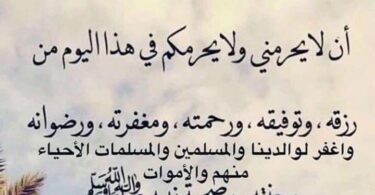 أن لا يحرمني ولا يحرمكم في هذا اليوم من
رزقه ، وتوفيقه ، ورحمته ، ومغفرته ، ورضوانه
واغفر لوالدينا والمسلمين والمسلمات الأحياء
منهم والأموات